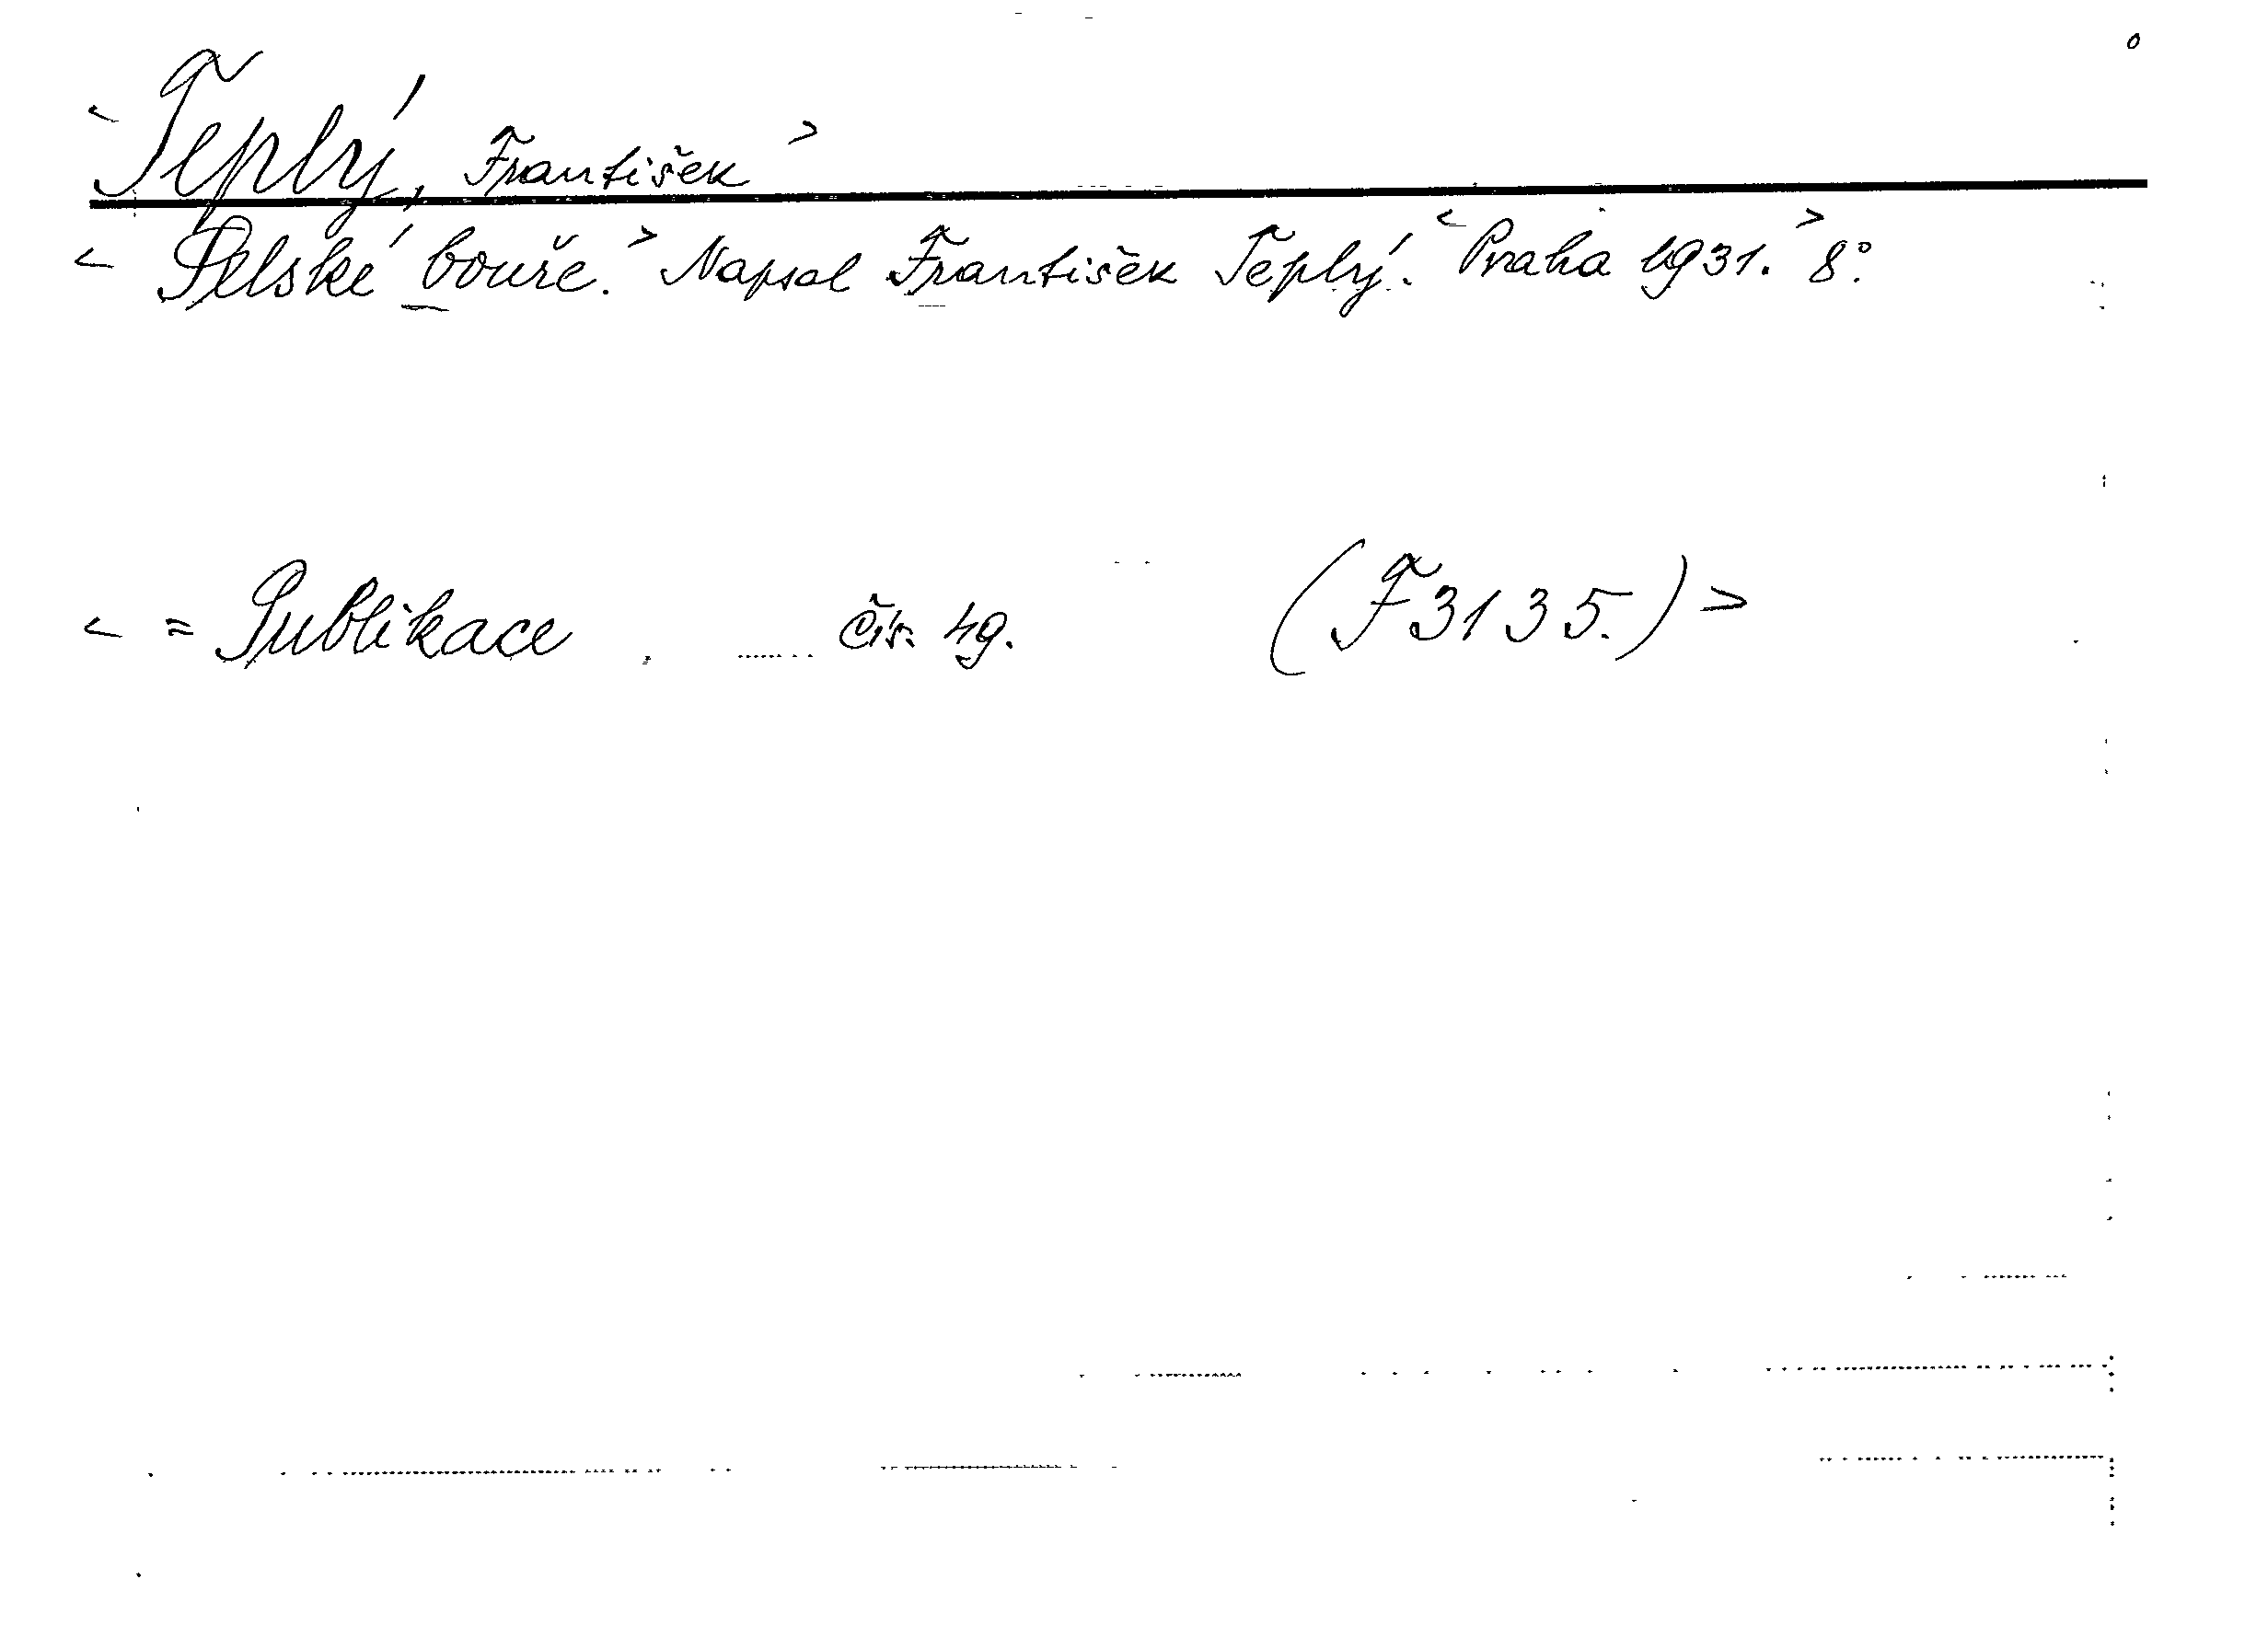 <Teplý, František>
<Selské bouře.> Napsal František Teplý. <Praha 1931.> 8°.
<= Publikace čís. 49. (F3135.)>